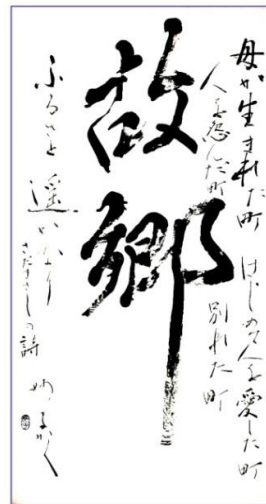 母が生まれた町 はじめて人を愛した町
人を怨んだ町 別れた町
故郷
ふるさと 遥かなり
さだまさしの詩